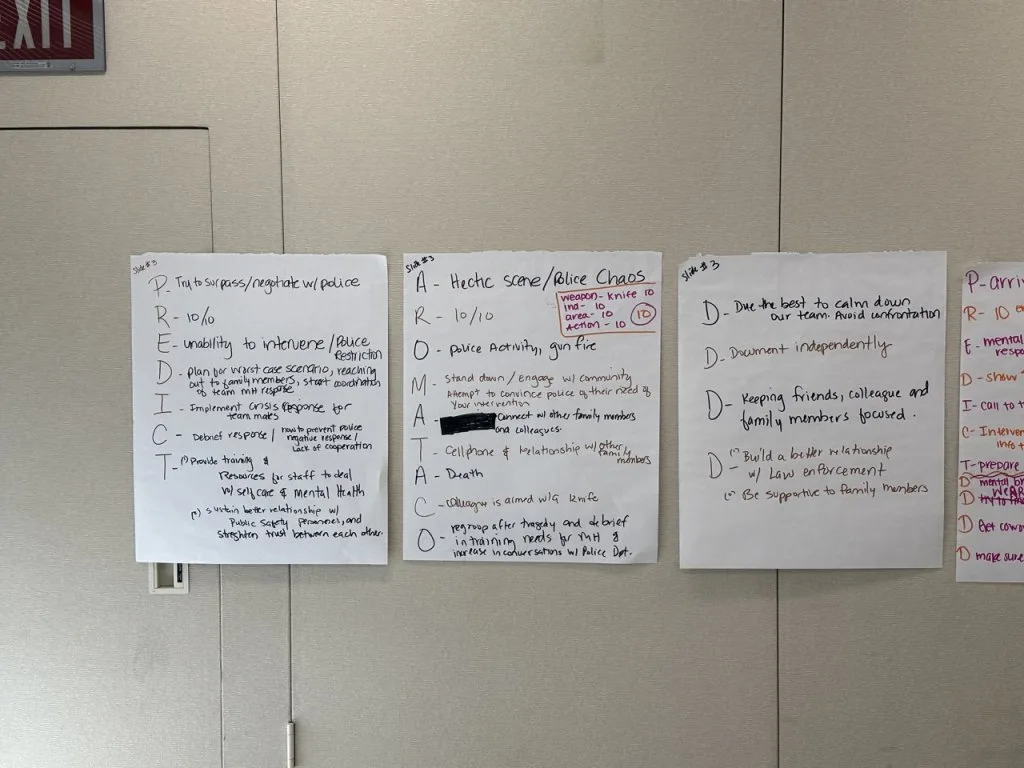 EXIT
Slide #3
P- Try to surpass/negotiate w/ police
R - 10/10
E - unability to intervene/Police Restriction
D - plan for worst case scenario, reaching
out to family members, start coordination
of team MH response
I - Implement Crisis Response for
team mates
C - Debrief response/ how to prevent police
negative response/
Lack of cooperation
T - (1) Provide training &
Resources for staff to deal
w/ self care & mental Health
sustain better relationship w/
Public Safety Personnel, and
streghten trust between each other.
Slide #3
A - Hectic scene/Police Chaos
weapon - knife 10
ind - 10
area - 10
Action - 10
10
R - 10/10
O - police Activity, gun fire
M - Stand down/Engage w/ community
Attempt to convince police of their need of
Your intervention
A - Connect w/ other family members
and colleagues.
T - Cellphone & Relationship w/ other
family
members
A - Death
C - Colleague is armed w/a knife
O - regroup after tragedy and debrief
in training needs for MH &
increase in conversations w/ Police Dpt.
Slide #3
D - Due the best to calm down
our team. Avoid confrontation
D - Document independently
D - Keeping friends, colleague and
family members focused.
D - (1) Build a better relationship
w/ Law enforcement
Be supportive to family members
P- arriv
R- 10
E- mental
respo
D - show
I- call to
C- Interven
info
T- prepare
D- mental
D try to
D Get cowor
D make sure